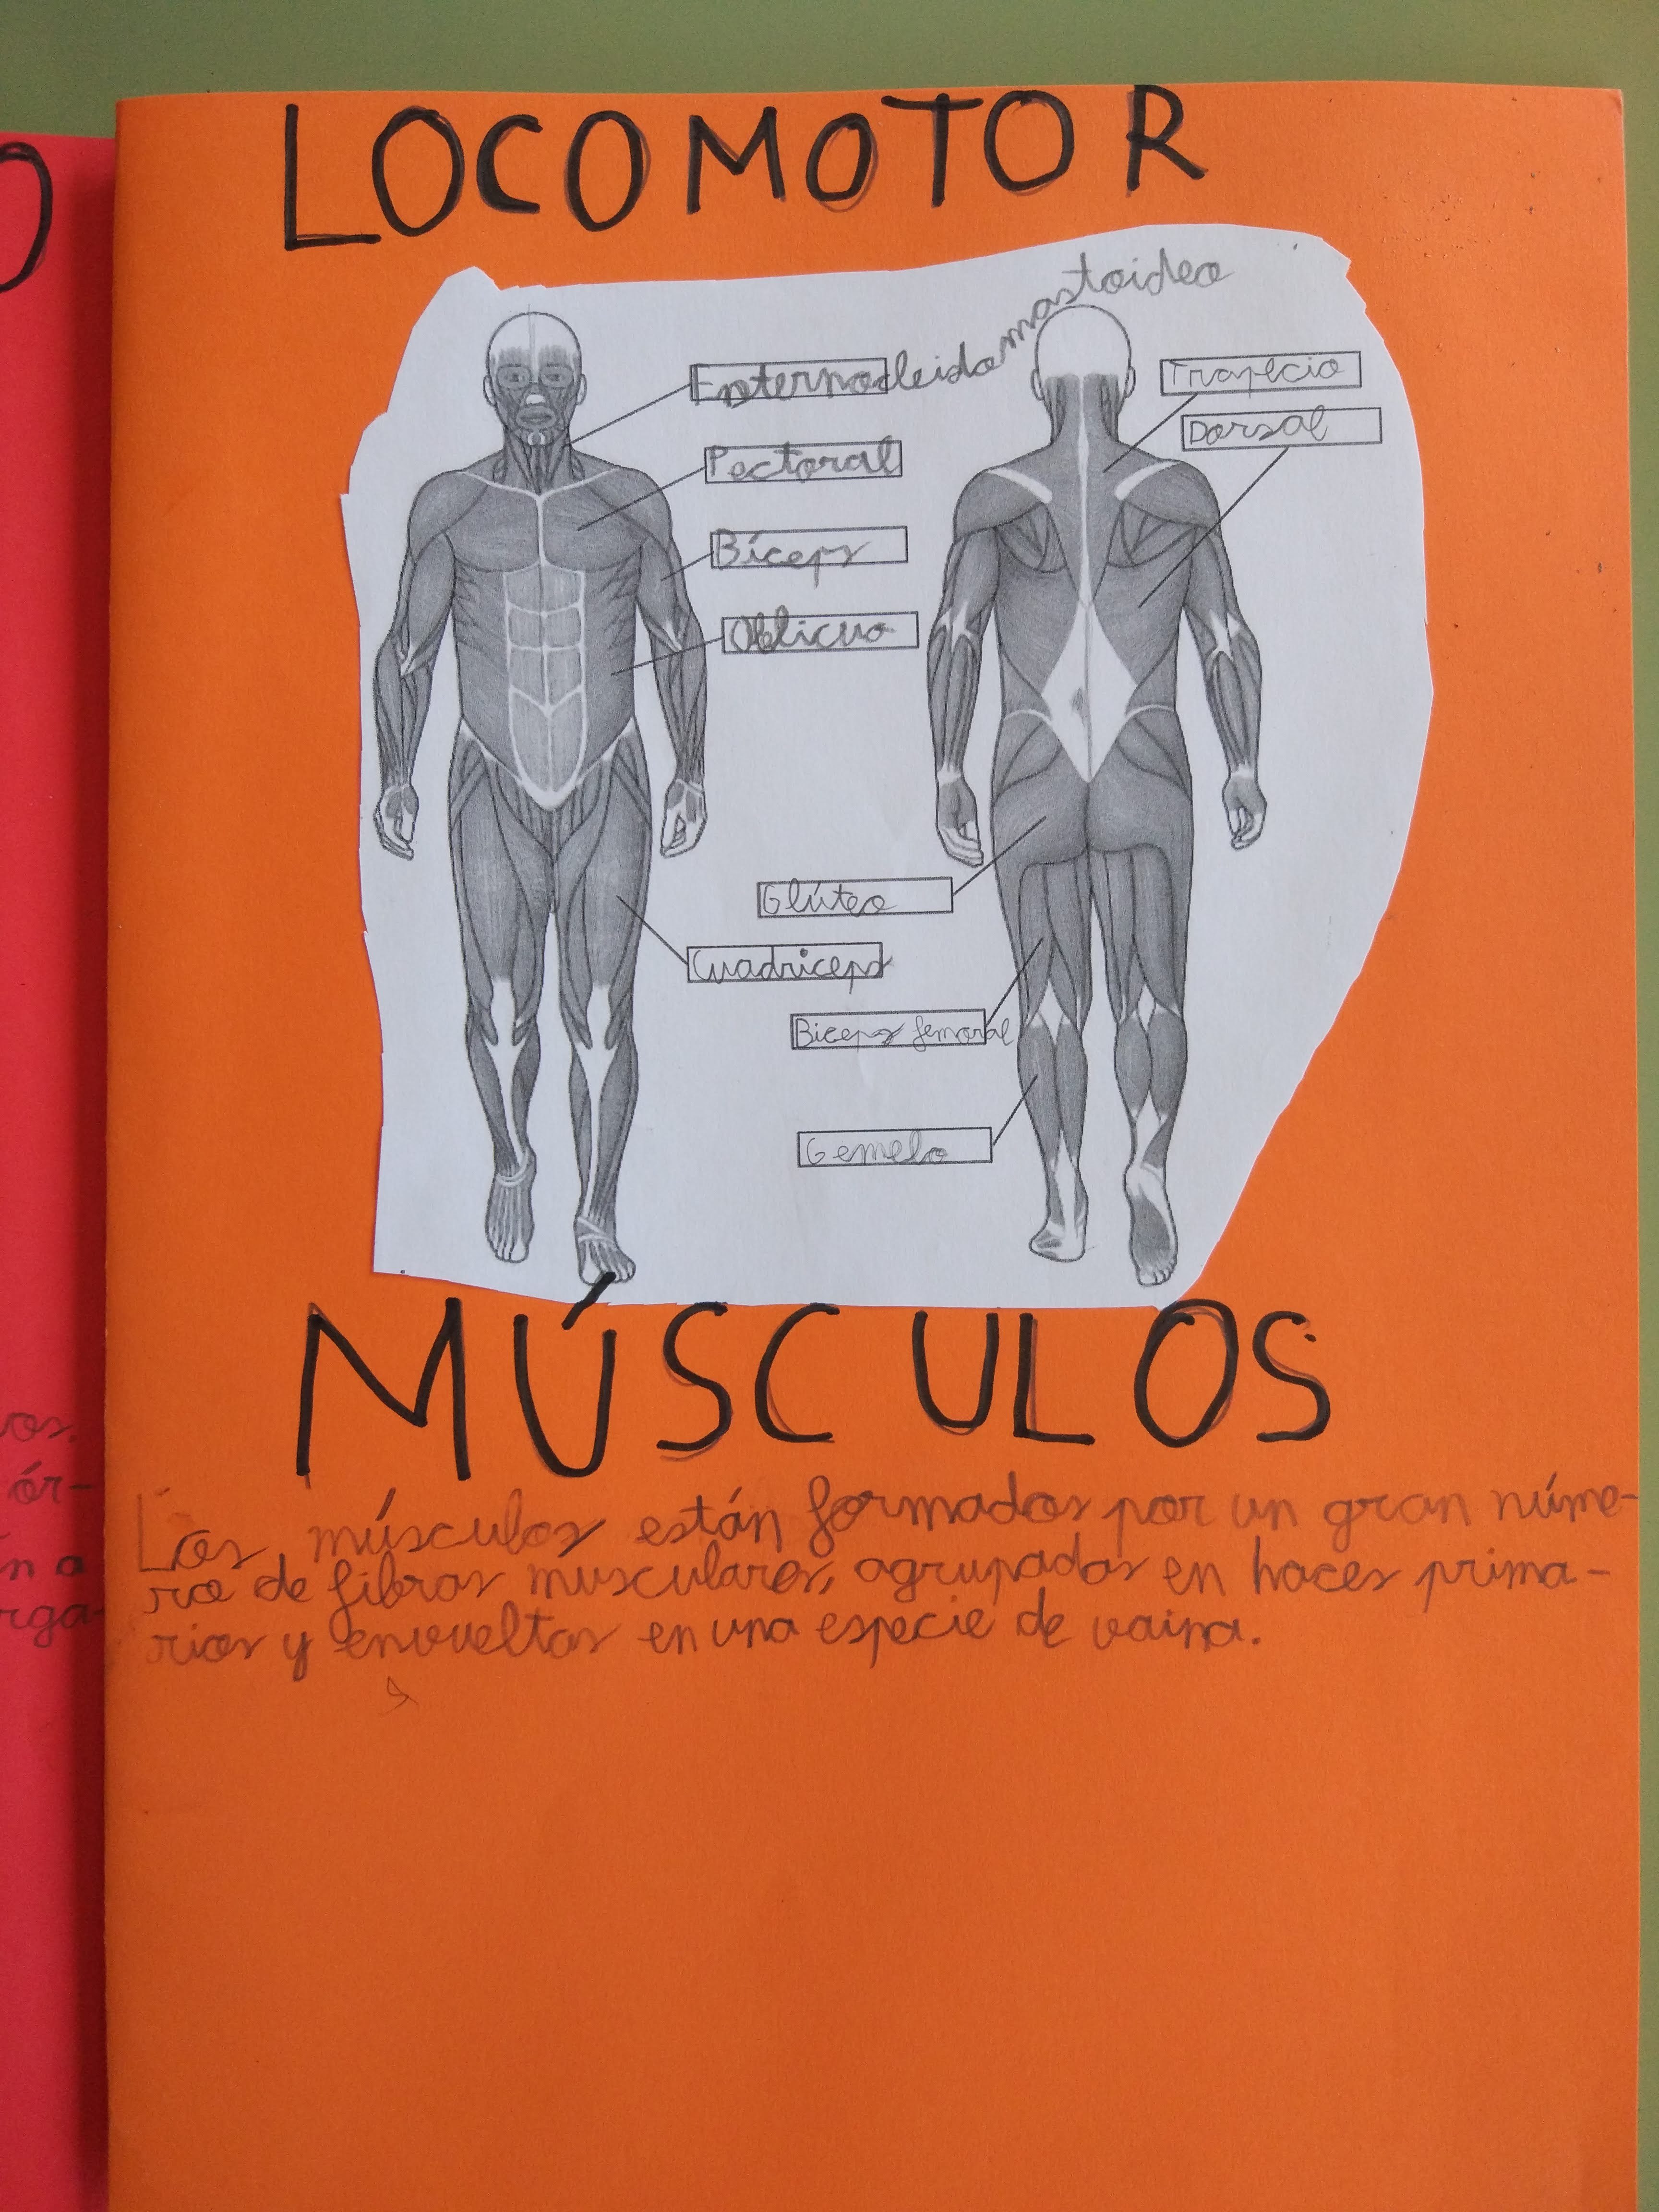 O
LOCOMOTOR
Esternocleidomastoideo
Pectoral
Bíceps
Oblicuo
Cuadriceps
Trapecio
Dorsal
Glúteo
Biceps femoral
Gemelo
MÚSCULOS
Los músculos están formados por un gran núme-
ro de fibras musculares, agrupadas en haces prima-
rios y envueltas en una especie de vaina.
vos.
ór-
n a
rga-